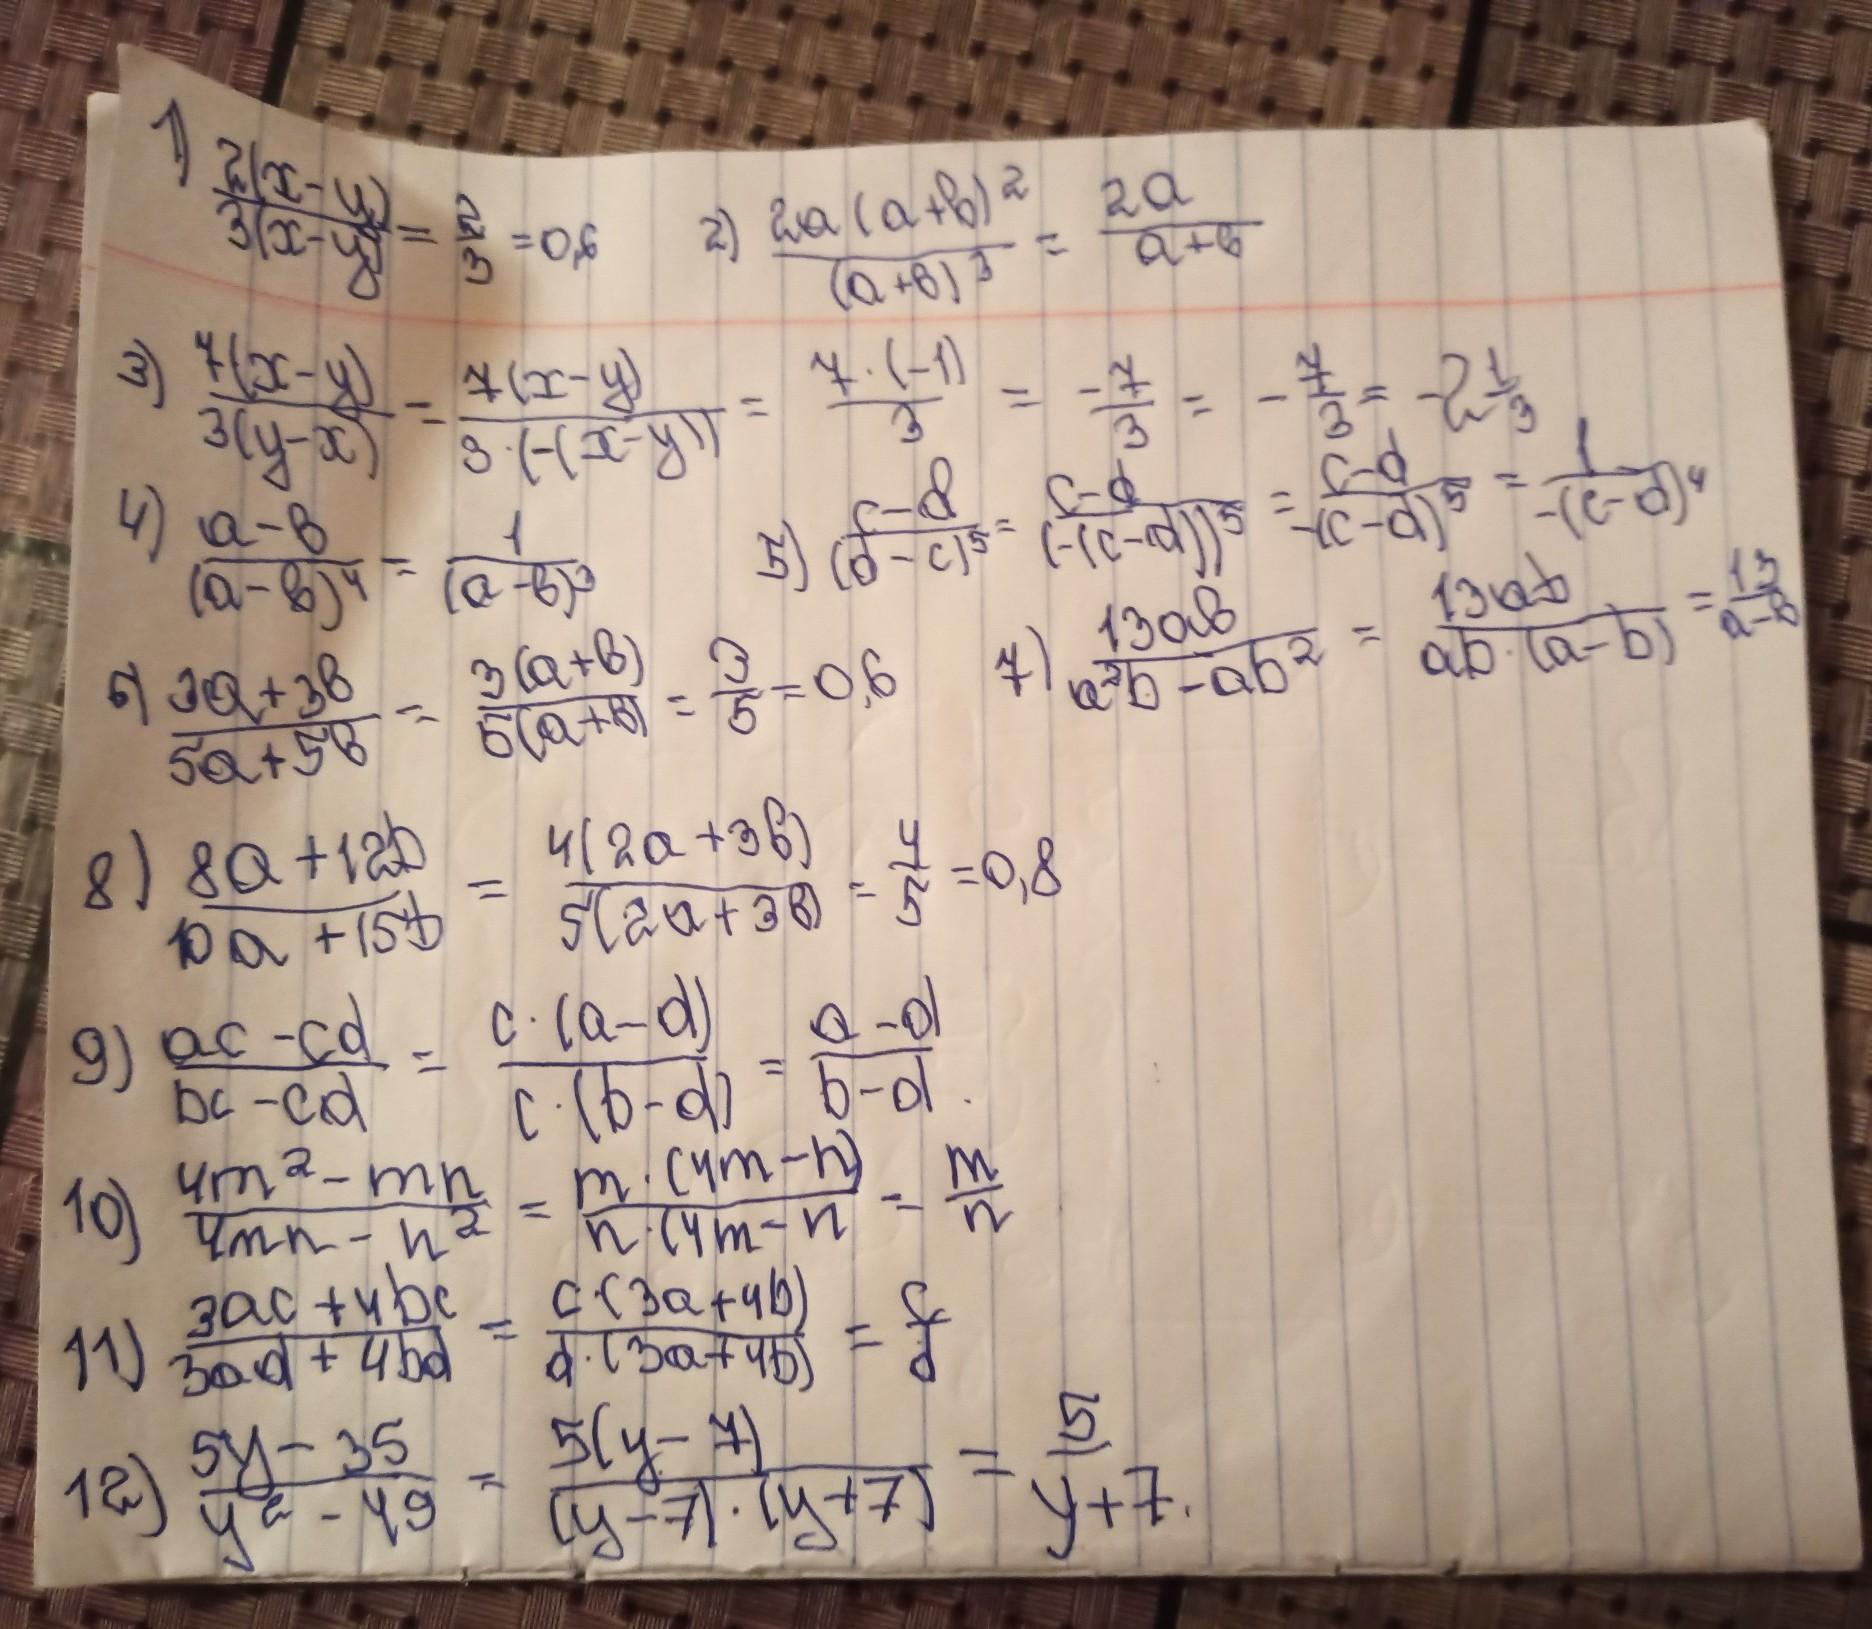 1) 2(x-y)/3(x-y) = 2/3 = 0,6 2) 2a(a+b)²/(a+b)³ = 2a/a+b
3) 7(x-y)/3(y-x) = 7(x-y)/3·(-(x-y)) = 7·(-1)/3 = -7/3 = -7/3 = -2 1/3
4) a-b/(a-b)⁴ = 1/(a-b)³ 5) c-d/(d-c)⁵ = c-d/(-(c-d))⁵ = c-d/-(c-d)⁵ = 1/-(c-d)⁴
6) 3a+3b/5a+5b = 3(a+b)/5(a+b) = 3/5 = 0,6 7) 13ab/a²b-ab² = 13ab/ab·(a-b) = 13/a-b
8) 8a+12b/10a+15b = 4(2a+3b)/5(2a+3b) = 4/5 = 0,8
9) ac-cd/bc-cd = c·(a-d)/c·(b-d) = a-d/b-d.
10) 4m²-mn/4mn-n² = m·(4m-n)/n·(4m-n = m/n
11) 3ac+4bc/3ad+4bd = c·(3a+4b)/d·(3a+4b) = c/d
12) 5y-35/y²-49 = 5(y-7)/(y-7)·(y+7) = 5/y+7.